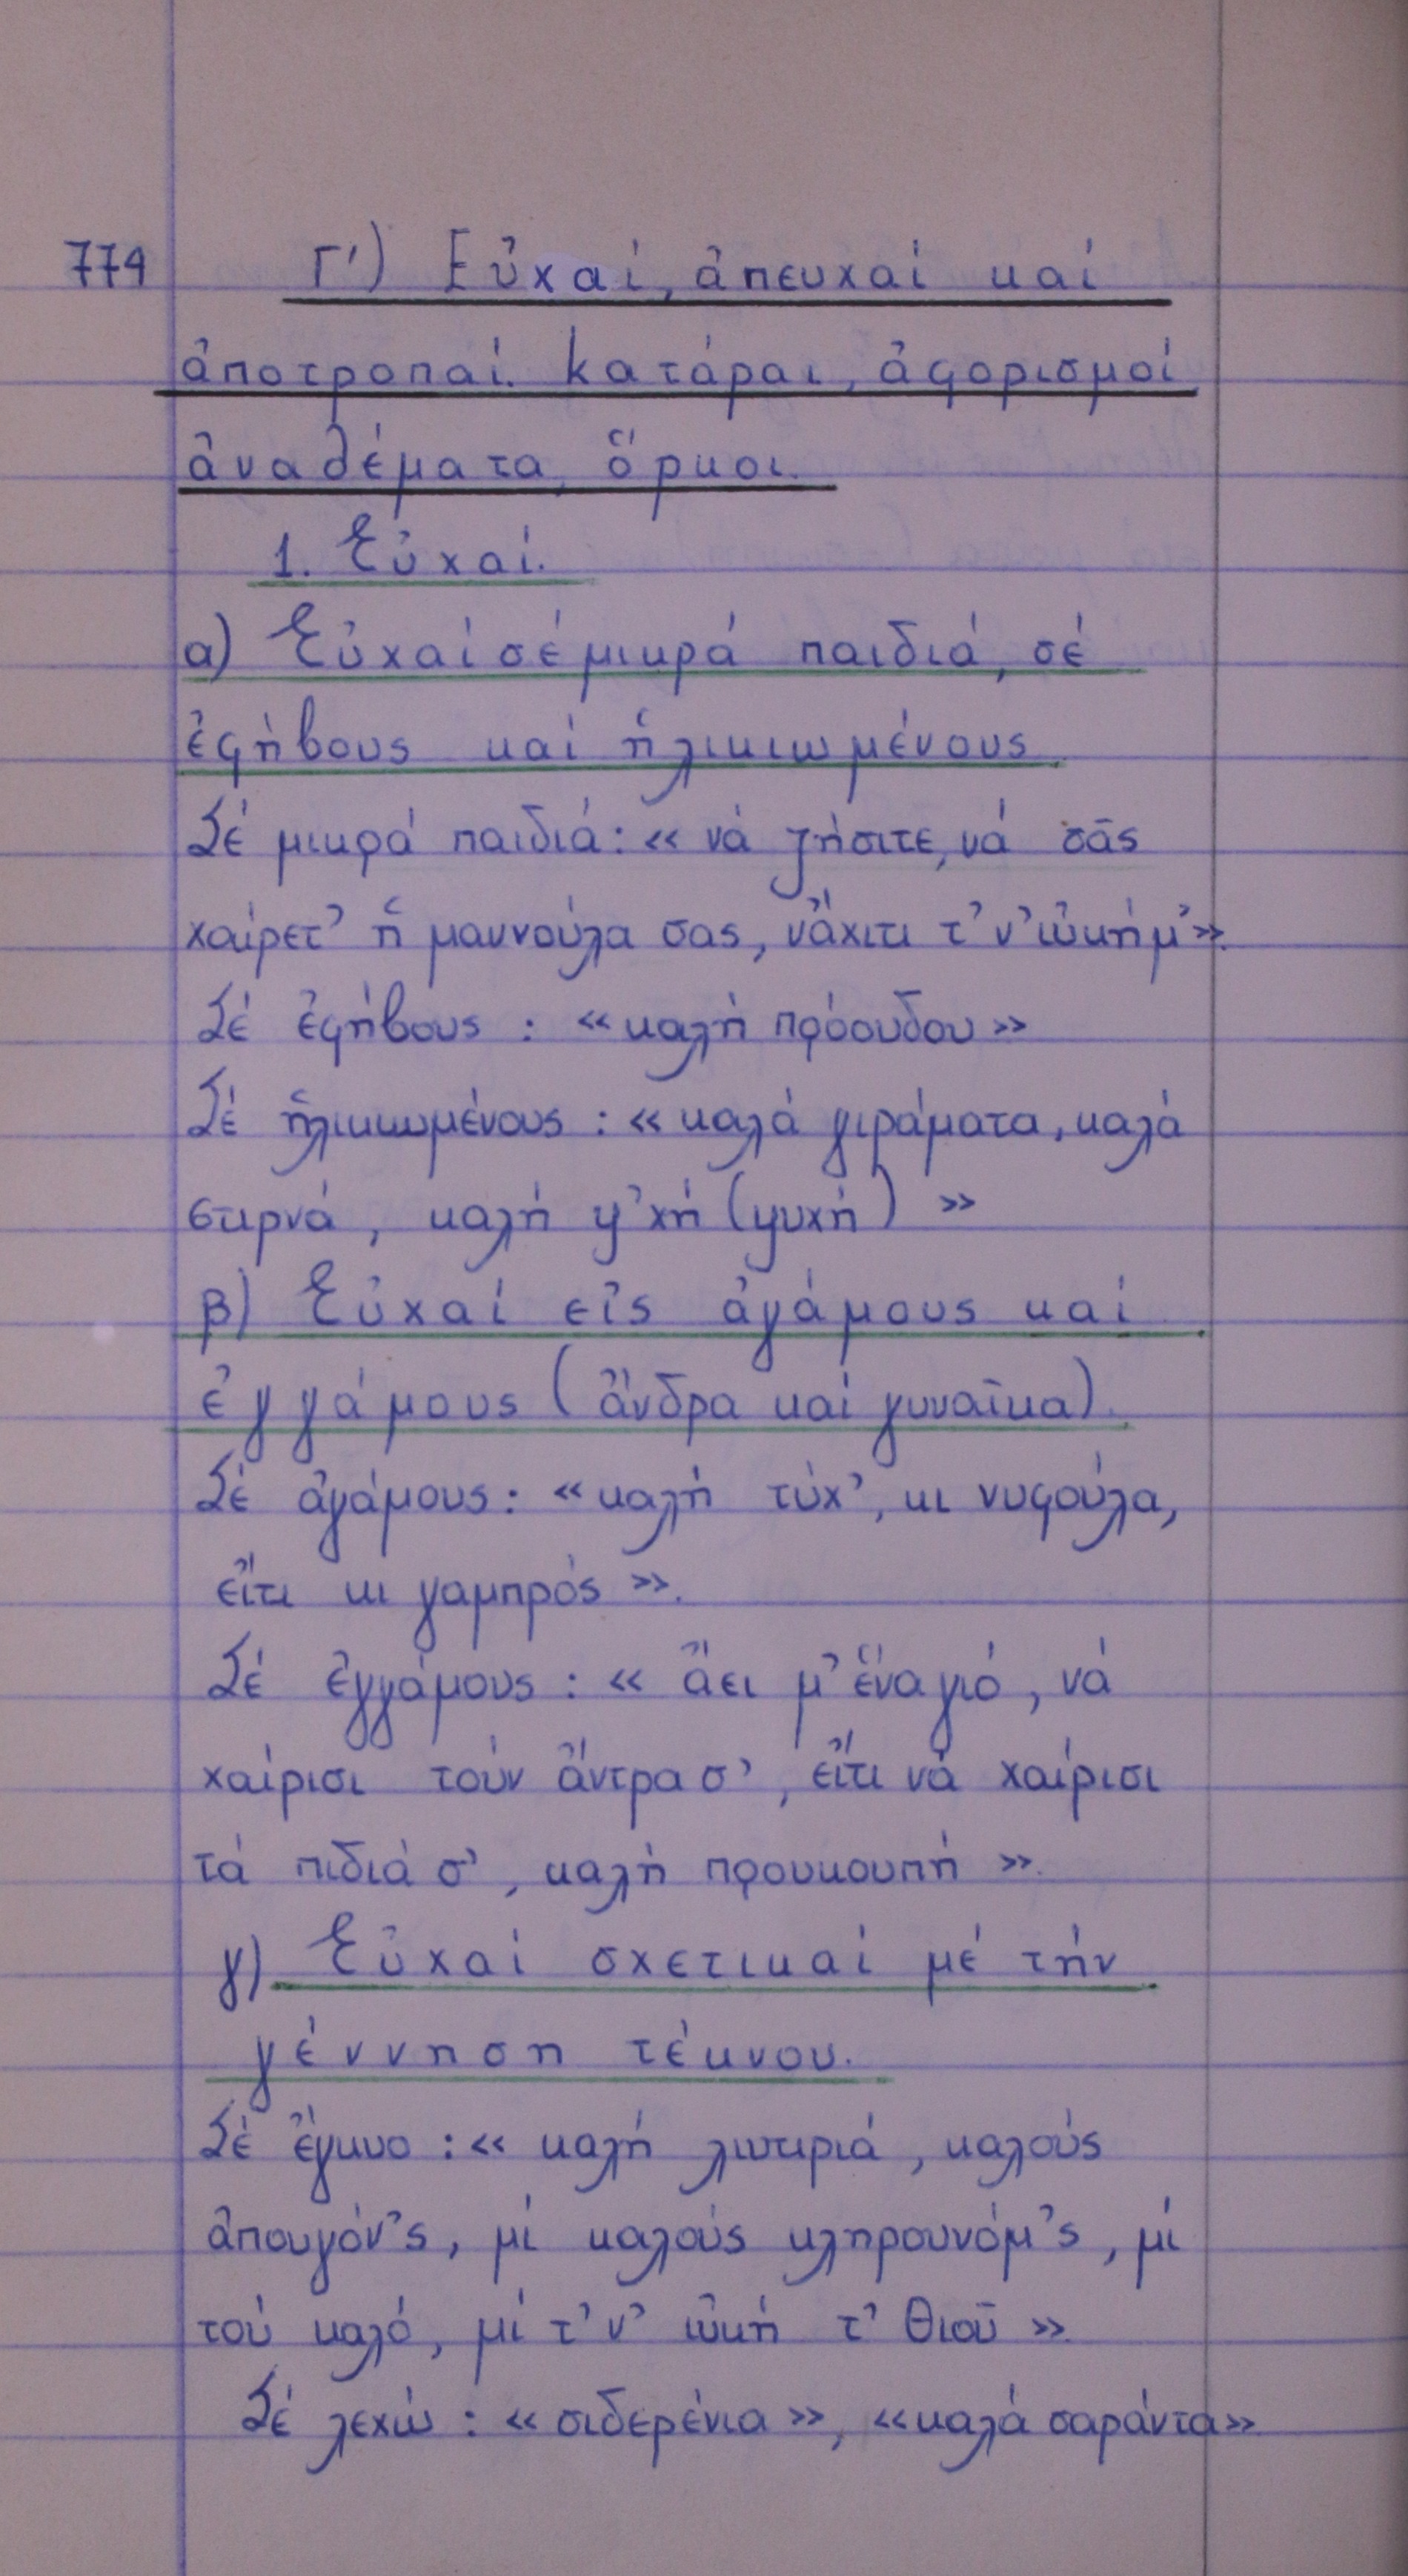 774 Γ') Εὐχαί, ἀπευχαί καί
ἀποτροπαί. Κατάραι, ἀφορισμοί
ἀναθέματα, ὅρκοι.
1. Εὐχαί.
α) Εὐχαί σέ μικρά παιδιά, σέ
ἐφήβους καί ἡλικιωμένους
Σέ μικρά παιδιά: « νά ζήσιτε, νά σᾶς
χαίρετ' ἡ μαννούλα σας, νἄχιτι τ' ν' ἰυκή μ' ».
Σέ ἐφήβους : « καλή πρόουδου »
Σέ ἡλικιωμένους : « καλά γιράματα, καλά
στιρνά, καλή ψ'χή (ψυχή) »
β) Εὐχαί εἰς ἀγάμους καί
ἐγγάμους (ἄνδρα καί γυναῖκα).
Σέ ἀγάμους: « καλή τύχ', κι νυφούλα,
εἴτι κι γαμπρός ».
Σέ ἐγγάμους : « ἄει μ' ἕνα γιό, νά
χαίρισι τούν ἄντρα σ', εἴτι νά χαίρισι
τά πιδιά σ', καλή προυκουπή ».
γ) Εὐχαί σχετικαί μέ τήν
γέννηση τέκνου.
Σέ ἔγκυο : « καλή λιυτιριά, καλούς
ἀπουγόν'ς, μί καλούς κληρουνόμ'ς, μί
τού καλό, μί τ' ν' ἰυκή τ' Θιοῦ ».
Σέ λεχώ : « σιδερένια », « καλά σαράντα »